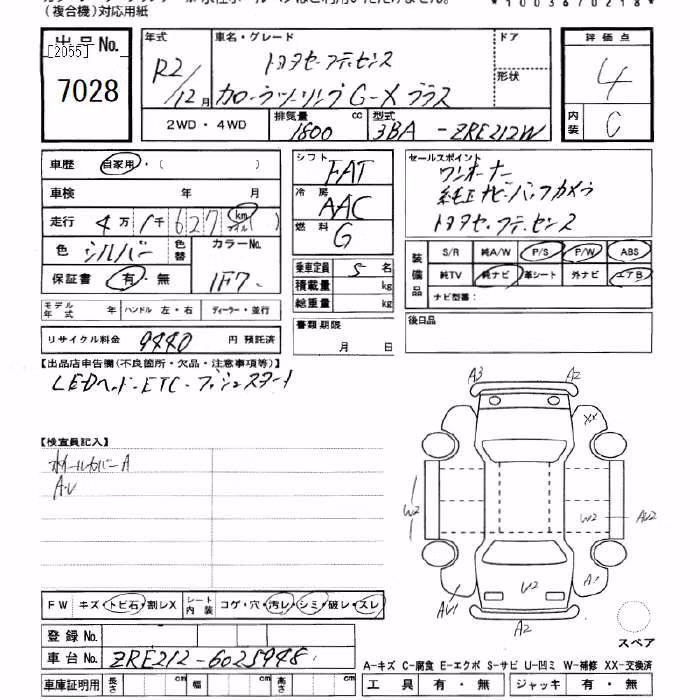 (複合機)対応用紙
*1003670218*
[2055]
出品No.
7028
年式
R2/12月
車名・グレード
トヨタセーフティセンス
カローラツーリング G-X プラス
ドア
形状
評価点
4
内装
C
2WD・4WD
排気量
1800
cc
型式
3BA-ZRE212W
車歴
自家用・( )
車検
年 月
走行
4万1千627
km
マイル
色
シルバー
色替
カラーNo.
1F7.
保証書
有・無
モデル年式
年
ハンドル 左・右
ディーラー・並行
リサイクル料金
9440
円 預託済
シフト
FAT
冷房
AAC
燃料
G
乗車定員
5
名
積載量
kg
総重量
kg
書類期限
月 日
セールスポイント
ワンオーナー
純正ナビ・バックカメラ
トヨタセーフティセンス
装備品
S/R 純A/W P/S P/W ABS
純TV 純ナビ 革シート 外ナビ エアB
ナビ型番:
後日品
【出品店申告欄(不良箇所・欠品・注意事項等)】
LEDヘッド・ETC・プッシュスタート
【検査員記入】
ホイールカバーA
A・U
A3
A2
XX
W2
W2
AU2
AU1
U2
A1
A2
スペア
FW キズ・トビ石・割レX
シート内装
コゲ・穴・汚レ・シミ・破レ・スレ
登録No.
車台No.
ZRE212-6025948
車庫証明用
長さ
cm
幅
cm
高さ
cm
A-キズ C-腐食 E-エクボ S-サビ U-凹ミ W-補修 XX-交換済
工具 有・無
ジャッキ 有・無